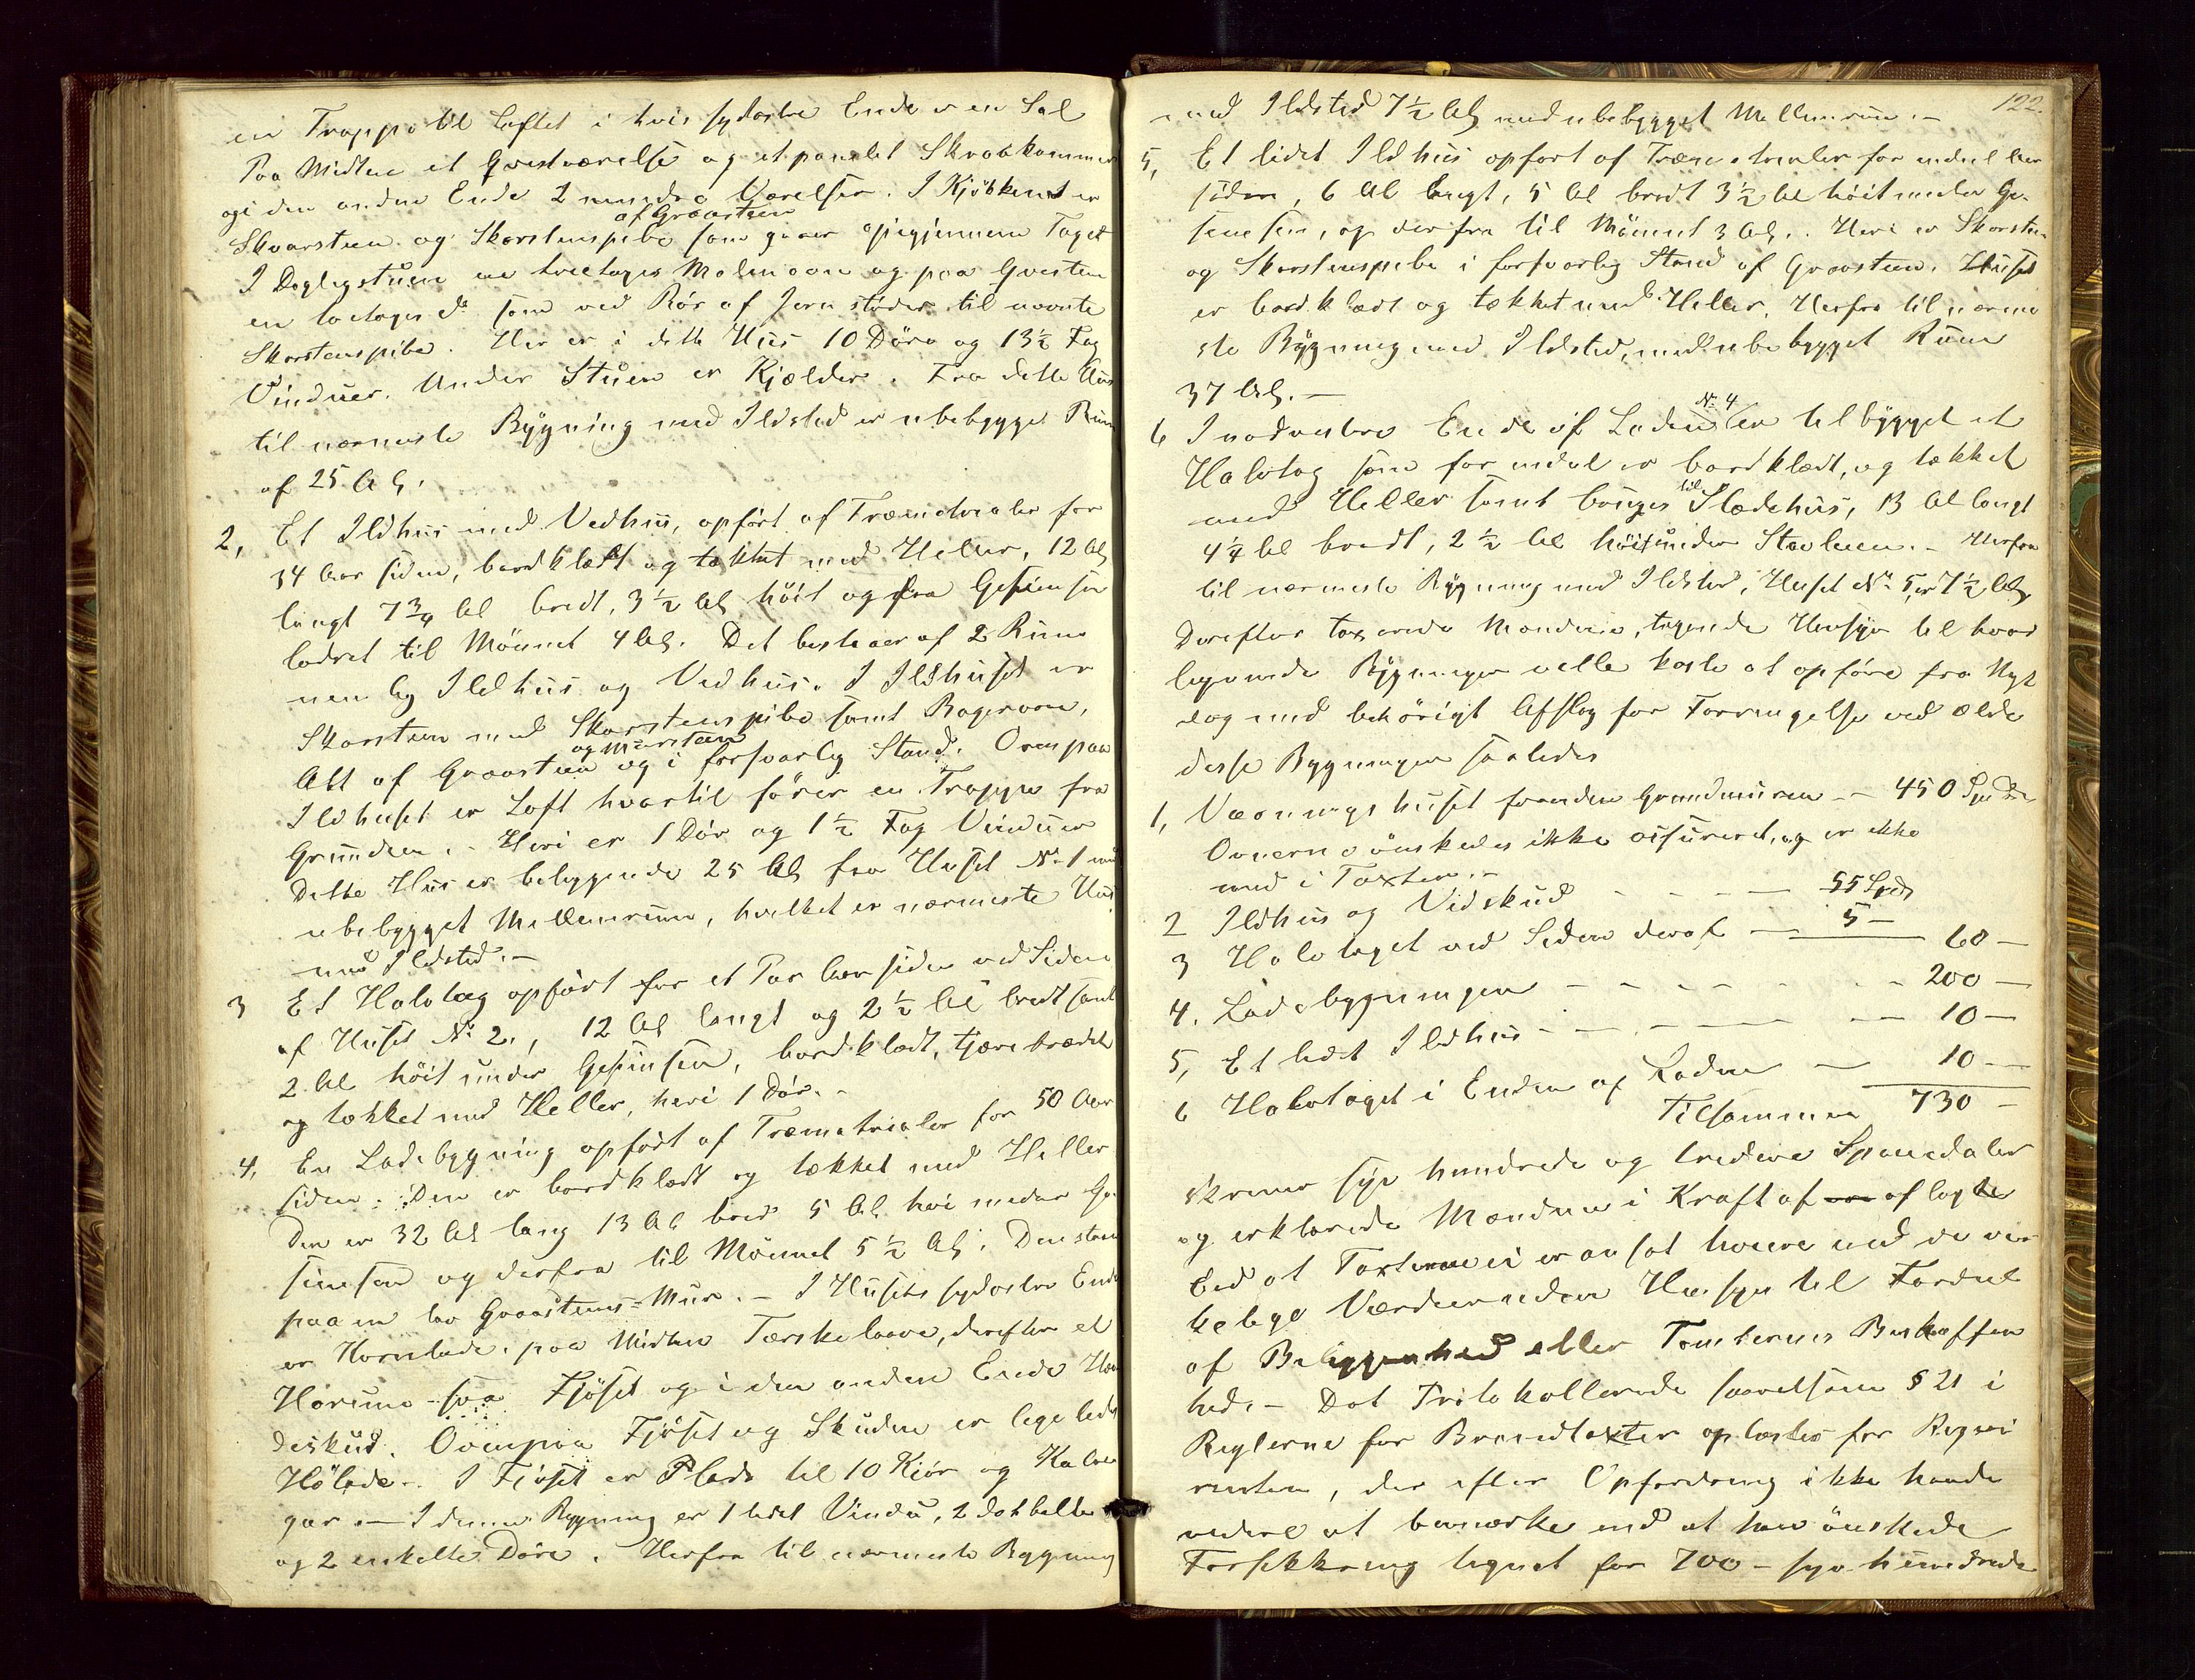 en Trappe til Loftet i hvis sydøstre Ende er en Sal
Paa Midten et Gjestværelse og et panelet Skrabkammer
og i den anden Ende 2 mindre Værelser. I Kjøkkenet er
af Graasteen
Skorsteen og Skorstenspibe som gaaer igjennem Taget
I Daglystuen en treetages Malmovn og paa Gvesten
en toetages do som ved Rör af Jern støder til nævnte
Skorstenspibe. Her er i dette Huus 10 Döre og 13½ Fag
Vinduer. Under Stuen er Kjælder. Fra dette Huus
til nærmeste Bygning med Ildsted er ubebygget Rum
af 25 Al.
2, Et Ildhuus med Vedhuus, opført af Træmaterialer for
34 Aar siden, bordklædt og tækket med Heller, 12 Al
langt 7¾ Al bredt, 3½ Al høit og fra Gesimsen
lodret til Mönnet 4 Al. Det bestaaer af 2 Rum
nemlig Ildhuus og Vedhuus. I Ildhuset er
Skorsteen med Skorstenspibe samt Bagerovn,
og Mursteen
Alt af Graasteen og i forsvarlig Stand. Ovenpaa
Ildhuset er Loft hvortil fører en Trappe fra
Grunden. - Heri er 1 Dör og 1½ Fag Vinduer
Dette Huus er beliggende 25 Al fra Huset No 1 med
ubebygget Mellemrum, hvilket er nærmeste Huus
med Ildsted. -
3 Et Halvtag opført for et Par Aar siden ved Siden
af Huset No 2, 12 Al langt og 2½ Al bredt samt
2 Al höit under Gesimsen, bordklædt, tjærebrædet
og tækket med Heller, heri 1 Dör. -
4, En Ladebygning opført af Træmaterialer for 50 Aar
siden. Den er bordklædt og tækket med Heller
Den er 32 Al lang 13 Al bred 5 Al høi under Ge-
simsen og derfra til Mönnet 5½ Al. Den staar
paa en lav Graasteens-Muur. - I Husets sydøstre Ende
er Kornlade, paa Midten Tærskelaave, derefter et
Hørum - saa Fjöset og i den anden Ende
deskud. Ovenpaa Fjöset og Skuden er ligeledes
Hölade. - I Fjöset er Plads til 10 Kiör og Kalve
gar. - I denne Bygning er 1 lidet Vindu, 2 dobbelte
og 2 enkelte Döre. Herfra til nærmeste Bygning
122.
med Ildsted 7½ Al med ubebygget Mellemrum. -
5, Et lidet Ildhuus opført af Træmaterialer for endeel Aar
siden, 6 Al langt, 5 Al bredt 3½ Al höit under Ge-
simsen, og derfra til Mönnet 3 Al. Heri er Skorsteen
og Skorstenspibe i forsvarlig Stand af Graasteen. Huset
er bordklædt og tækket med Heller. Herfra til nærme
ste Bygning med Ildsted, med ubebygget Rum
37 Al. -
No 4
6 I nordvestre Ende af Laden er tilbygget et
Halvtag som for endeel er bordklædt, og tækket
til
med Heller samt bruges Slædehuus, 13 Al langt
4¼ Al bredt, 2½ Al höit under Stavlinen. - Herfra
til nærmeste Bygning med Ildsted, Huset No 5, er 7½ Al
Derefter taxerede Mændene, tagende Hensyn til hvad
lignende Bygninger ville koste at opføre fra Nyt
dog med behörigt Afslag for Forringelse ved ælde
disse Bygninger saaledes
1, Vaaningshuset foruden Grundmuren - - 450 Spd
Ovnerne önskedes ikke assureret, og er ikke
med i Taxten. -
2 Ildhuus og Vedskud - - - - 55 Spd
3 Halvtaget ved Siden deraf - 5 - 60 -
4. Ladebygningen - - - - - - 200 -
5, Et lidet Ildhuus - - - - - - 10 -
6 Halvtaget i Enden af Laden - 10 -
Tilsammen 730 -
skriver syv hundrede og tredive Speciedaler
og erklærede Mændene i Kraft af aflagte
Eed at Taxterne ei er ansat høiere end de vir-
kelige Værdier uden Hensyn til Fordeel
af Beliggenhed eller Tomternes Beskaffen
hed. - Det Protokollerede saavelsom § 21 i
Reglerne for Brandtaxter oplæstes for Reqvi
renten, der efter Opfordring ikke havde
videre at bemærke end at han önskede
Forsikkring tegnet for 700 - syv hundrede